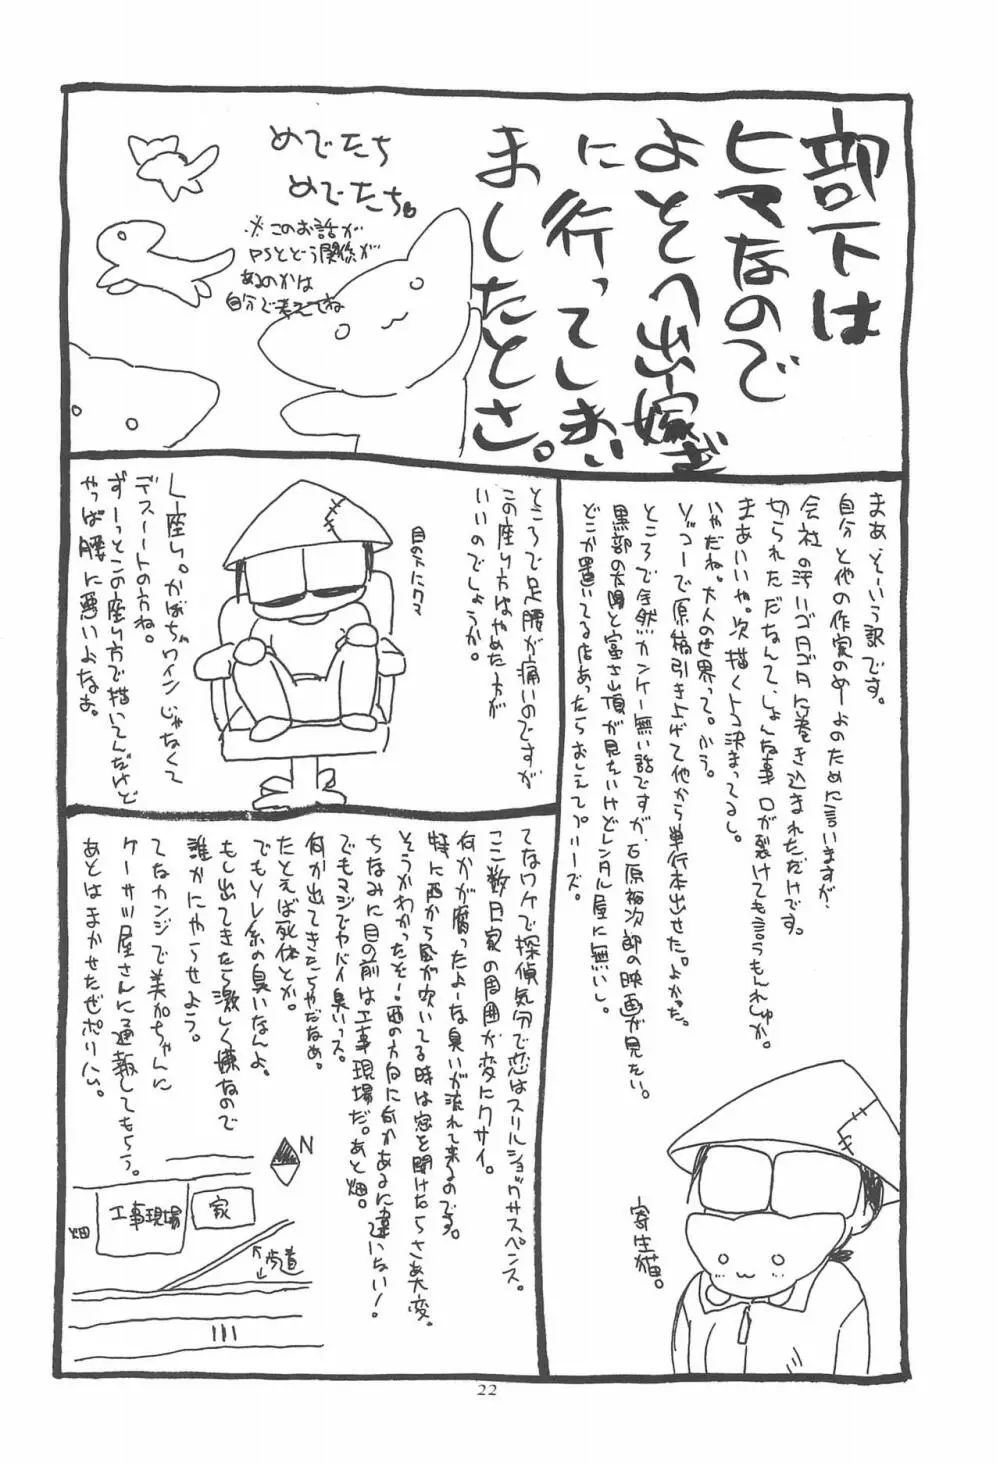 部下は
ヒマなので
よそへ出稼ぎ
に行ってしまい
ましたとさ。
めでたち
めでたち。
※このお話が
PSとどう関係が
あるのかは
自分で考えてね
まあ、そーいう訳です。
自分と他の作家のめーよのために言いますが、
会社の汚いゴタゴタに巻き込まれただけです。
切られただなんて、しょんな事口が裂けても言うもんれしゅか。
まあいいや。次描くトコ決まってるし。
いやだね。大人の世界って。ふう。
ソッコーで原稿引き上げて他から単行本出せた。よかった。
ところで全然カンケー無い話ですが、石原裕次郎の映画が見たい。
黒部の太陽と富士山頂が見たいけどレンタル屋に無いし。
どこか置いてる店あったらおしえてプリーズ。
寄生猫。
ところで足腰が痛いのですが
この座り方はやめた方が
いいのでしょうか。
目の下にクマ
L座り。かぼちゃワインじゃなくて
デスノートの方ね。
ずーっとこの座り方で描いてんだけど
やっぱ腰に悪いよなぁ。
てなワケで探偵気分で恋はスリルショックサスペンス。
ここ数日家の周囲が変にクサイ。
何かが腐ったよーな臭いが流れて来るのです。
特に西から風が吹いてる時は窓を開けたらさあ大変。
そうかわかったぞ！西の方向に何かあるに違いない！
ちなみに目の前は工事現場だ。あと畑。
でもマジでヤバイ臭いっス。
何か出てきたらやだなぁ。
たとえば死体とか。
でもソレ系の臭いなんよ。
もし出てきたら激しく嫌なので
誰かにやらせよう。
てなカンジで美加ちゃんに
ケーサツ屋さんに通報してもらう。
あとはまかせたぜポリ公。
N
畑
工事現場
家
歩道
22